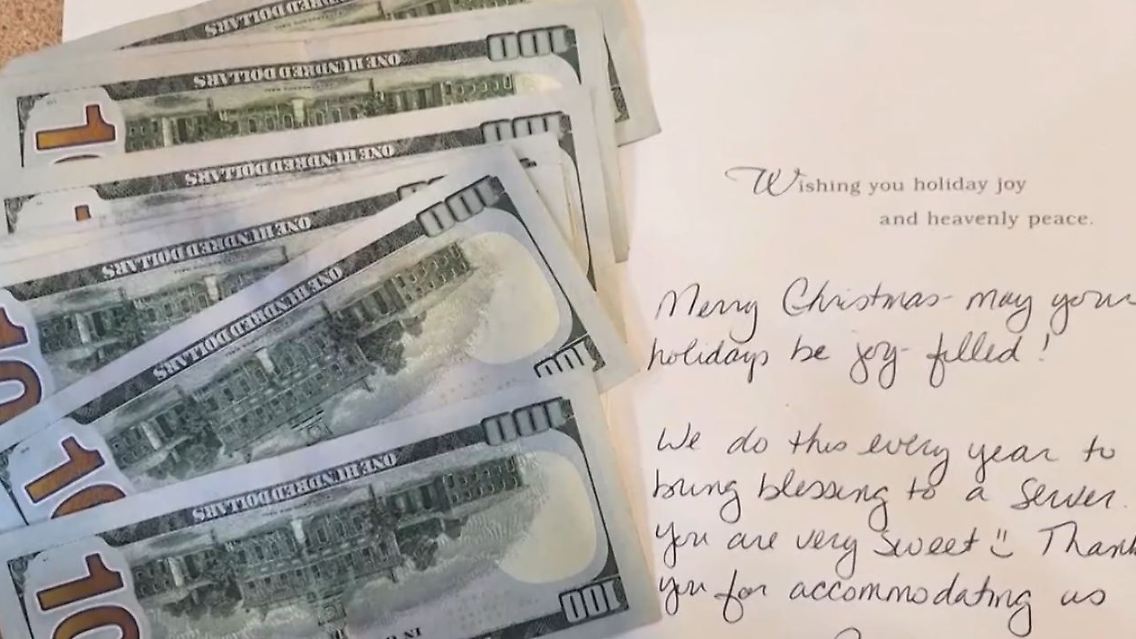 ONE HUNDRED DOLLARS
100
ONE HUNDRED DOLLARS
1
100
ONE HUNDRED DOLLARS
ONE HUNDRED DOLLARS
10
100
ONE HUNDRED DOLLARS
100
10
100
ONE HUNDRED DOLLARS
10
100
Wishing you holiday joy
and heavenly peace.
Merry Christmas - may your
holidays be joy-filled!
We do this every year to
bring blessing to a server.
You are very sweet Thank
you for accommodating us